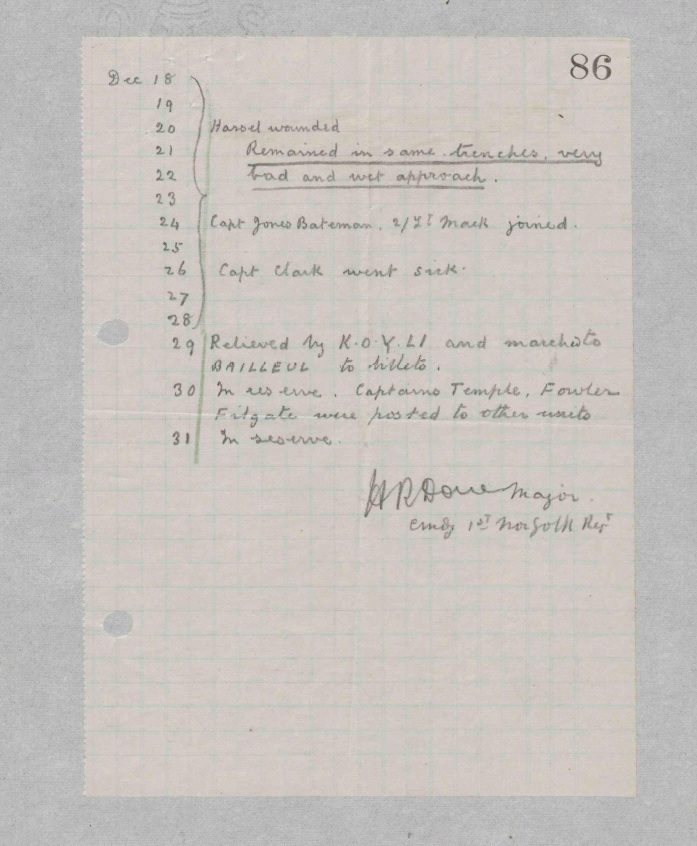 86
Dec 18
19
20 Harsel wounded
21 Remained in same trenches, very
22 bad and wet approach.
23
24 Capt Jones Bateman, 2/Lt Mack joined.
25
26 Capt Clark went sick.
27
28
29 Relieved by K.O.Y.LI and marched to
BAILLEUL to billets.
30 In reserve. Captains Temple, Fowler
Fitgate were posted to other units
31 In reserve.
H R Done Major.
Cmdg 1st Norfolk Regt